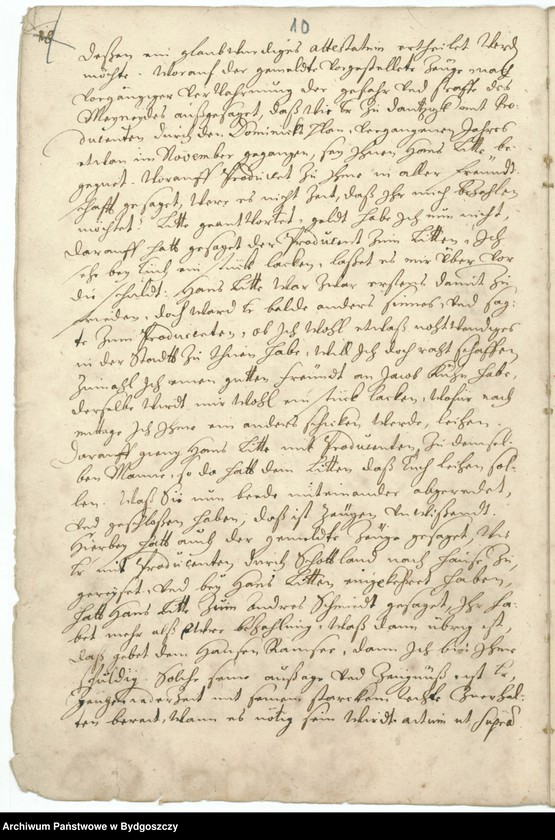 10
deßen ein glaubwürdiges attestatum ertheilet werden
möchte. Worauf der gemeldte vorgestellete Zeuge nach
vorgängiger Verwahrnung der gefahr und straffe des
Meyneydes außgesaget, daß wie Er zu Dantzigk mit Pro-
ducenten durch den Dominicks Plan vergangenen Jahres
etwan im November gegangen, sey Ihnen Hans Litte be-
gegnet. Worauff Producent zu Ihme in aller freund-
schafft gesaget, Were es nicht Zeit, daß Ihr mich bezahlen
möchtet? Litte geantwortet, geldt habe Ich nun nicht,
darauff hatt gesaget der Producent zum Litten, Ich
sehe bey Euch ein stück lacken, laßet es mir über vor
die schuldt. Hans Litte war zwar erstens damit zu
frieden, doch ward Er balde anders sinnes, und sag-
te zum Producenten, ob Ich wohl etwaß nohtwendiges
in der Stadt zu thuen habe, will Ich doch raht schaffen
Zumahl Ich einen gutten freundt an Jacob Kühn habe,
derselbe wirdt mir wohl ein stück lacken, wofur nach
mittage Ich Ihme ein anders schicken werde, leihen.
Darauff gieng Hans Litte mit Producenten, zu demsel-
ben Manne, so da hatt dem Litten, daß Tuch leihen sol-
len. Waß Sie nun beede miteinander abgeredet,
und geschloßen haben, daß ist Zeugen unwißendt.
Hierbey hatt auch der gemeldte Zeuge gesaget, Wie
Er mit Producenten durch Schottland nach hause zu
gereyset, und bey Hans Litten eingekehret haben,
hatt Hans Litte zum Andres Schmidt gesaget, Ihr ha-
bet mehr alß Eure bezahlung, Waß dann übrig ist,
daß gebet dem Hansen Ramsee, dann Ich bin Ihme
schuldig. Solche seine außage und Zeugnüß ist Er,
Zeuge iederzeit mit seinem starcken eyde zuerhal-
ten bereit, wann es nötig sein wirdt. actum ut supra
Archiwum Państwowe w Bydgoszczy